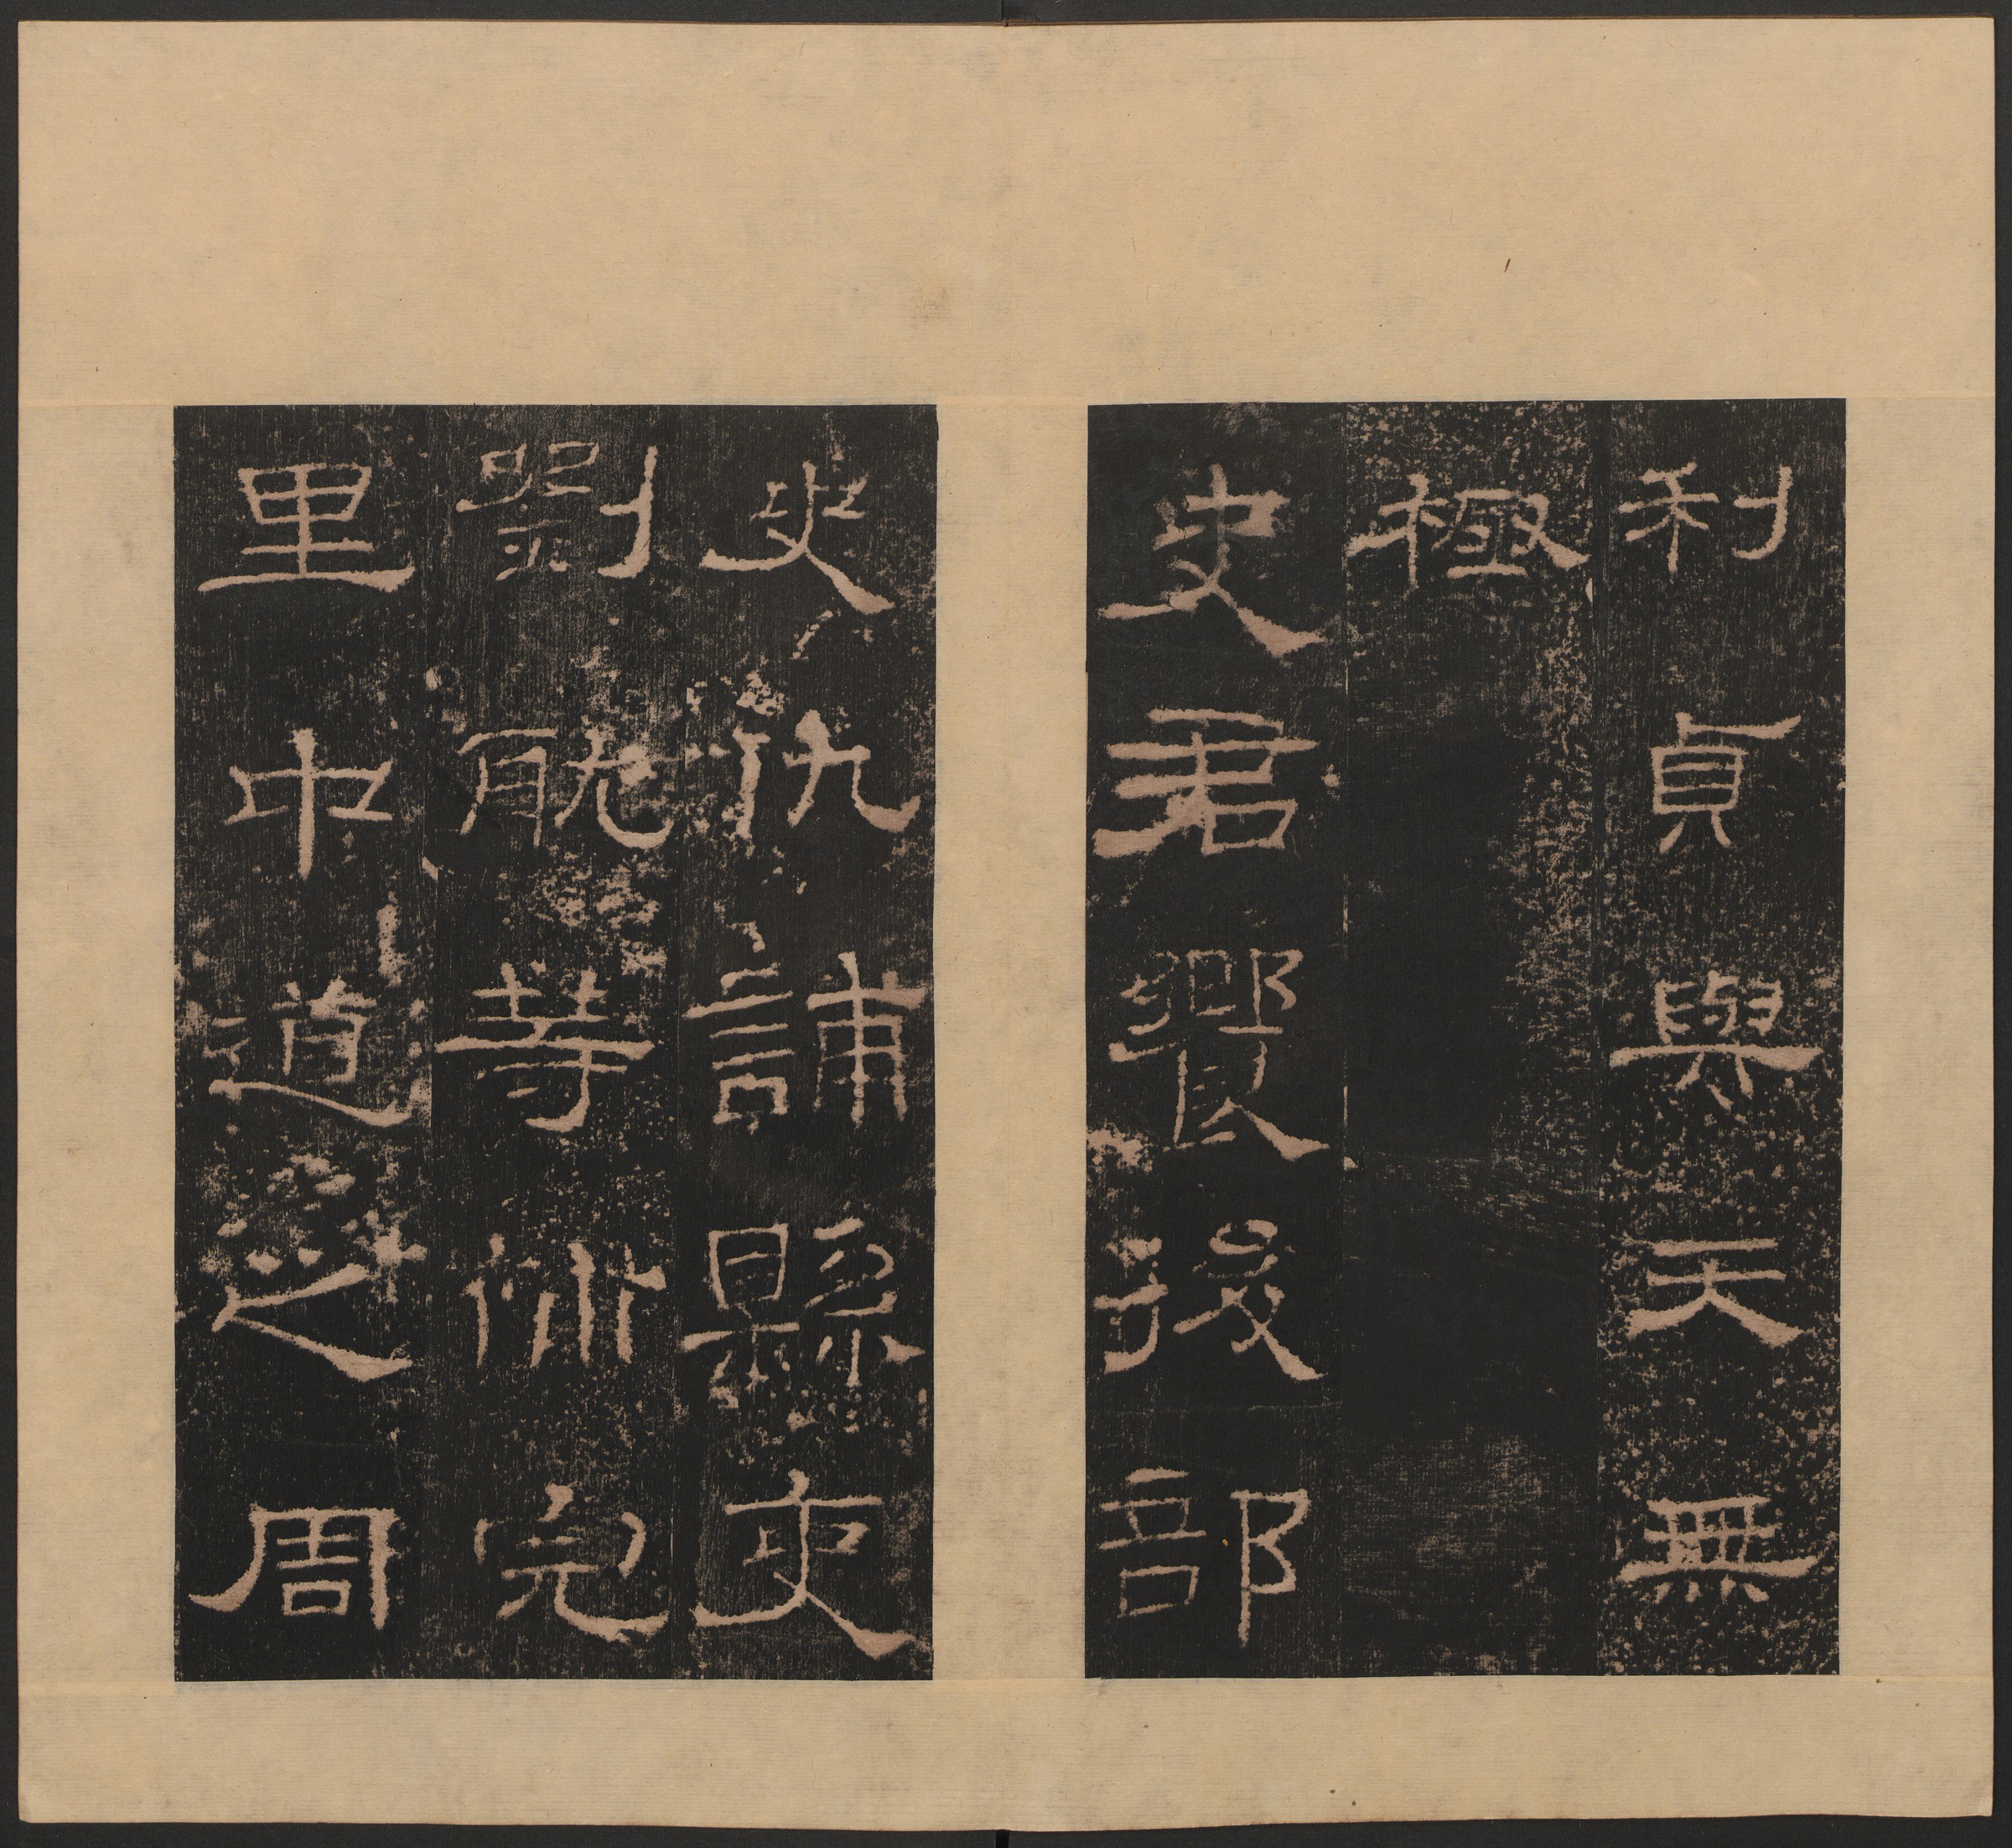 利貞與天無
極
史君饗後部
史仇誧縣吏
劉耽等補完
里中道之周